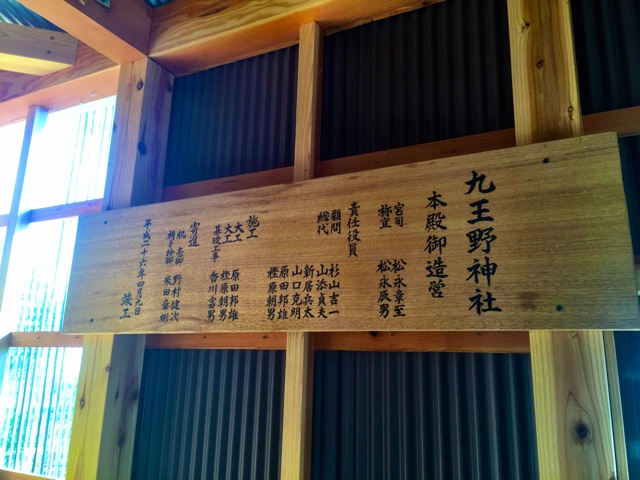 九王野神社
本殿御造営
宮司 松永章至
祢宜 松永辰男
責任役員
顧問 杉山吉一
総代 山添貞夫
新居兵太
山口克明
原田邦雄
樫原朝男
施工
大工 原田邦雄
大工 樫原朝男
基礎工事 香川富男
寄進
野村健次
米田
平成二十六年四月九日
竣工